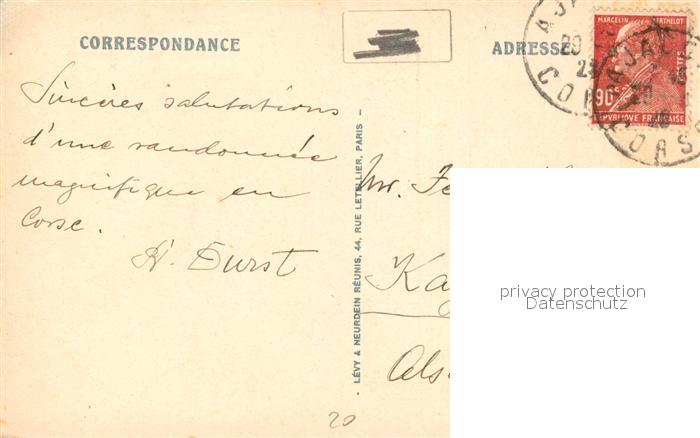 CORRESPONDANCE
ADRESSE
MARCELIN BERTHELOT
POSTES
90c
REPVBLIQVE FRANÇAISE
AJA
CORSE
Sincères salutations
d'une randonnée
magnifique en
Corse.
H. Durst
LÉVY & NEURDEIN RÉUNIS, 44, RUE LETELLIER, PARIS -
Mr. Fe
Kay
Als
privacy protection
Datenschutz
20